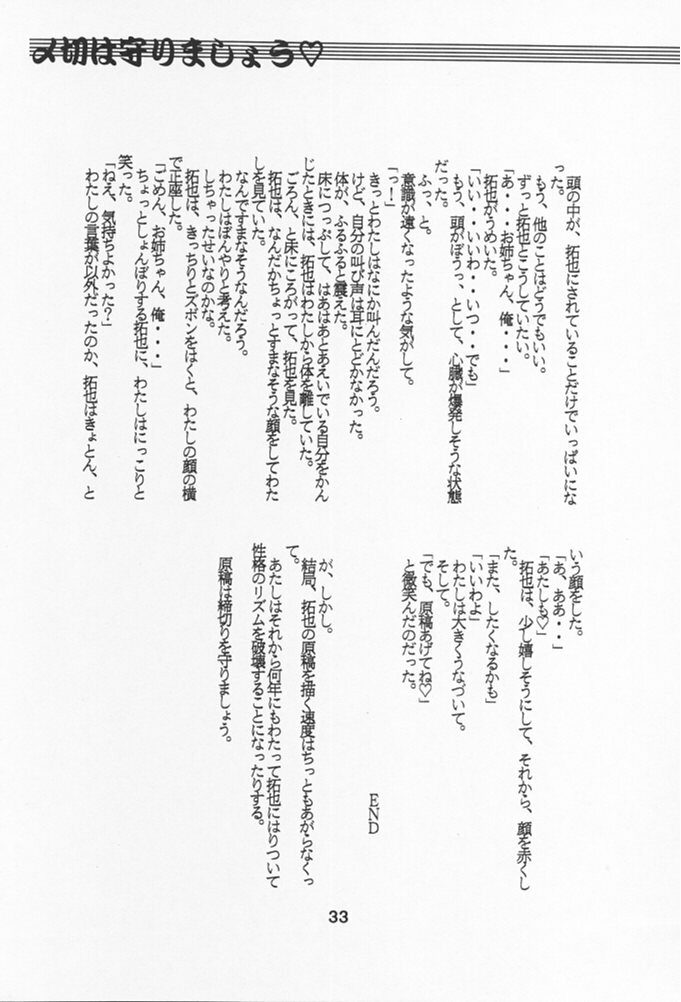 〆切は守りましょう♡
頭の中が、拓也にされていることだけでいっぱいにな
った。
もう、他のことはどうでもいい。
ずっと拓也とこうしていたい。
「あ・・・お姉ちゃん、俺・・・」
拓也がうめいた。
「いい・・・いいわ・・いつ・・でも」
もう、頭がぼうっ、として、心臓が爆発しそうな状態
だった。
ふっ、と。
意識が遠くなったような気がして。
「っ！」
きっとわたしはなにか叫んだんだろう。
けど、自分の叫び声は耳にとどかなかった。
体が、ふるふると震えた。
床につっぷして、はあはあとあえいでいる自分をかん
じたときには、拓也はわたしから体を離していた。
ごろん、と床にころがって、拓也を見た。
拓也は、なんだかちょっとすまなそうな顔をしてわた
しを見ていた。
なんですまなそうなんだろう。
わたしはぼんやりと考えた。
しちゃったせいなのかな。
拓也は、きっちりとズボンをはくと、わたしの顔の横
で正座した。
「ごめん、お姉ちゃん、俺・・・」
ちょっとしょんぼりする拓也に、わたしはにっこりと
笑った。
「ねえ、気持ちよかった？」
わたしの言葉が以外だったのか、拓也はきょとん、と
いう顔をした。
「あ、ああ・・」
「あたしも♡」
拓也は、少し嬉しそうにして、それから、顔を赤くし
た。
「また、したくなるかも」
「いいわよ」
わたしは大きくうなづいて。
そして。
「でも、原稿あげてね♡」
と微笑んだのだった。
END
が、しかし。
結局、拓也の原稿を描く速度はちっともあがらなくっ
て。
あたしはそれから何年にもわたって拓也にはりついて
性格のリズムを破壊することになったりする。
原稿は締切りを守りましょう。
33